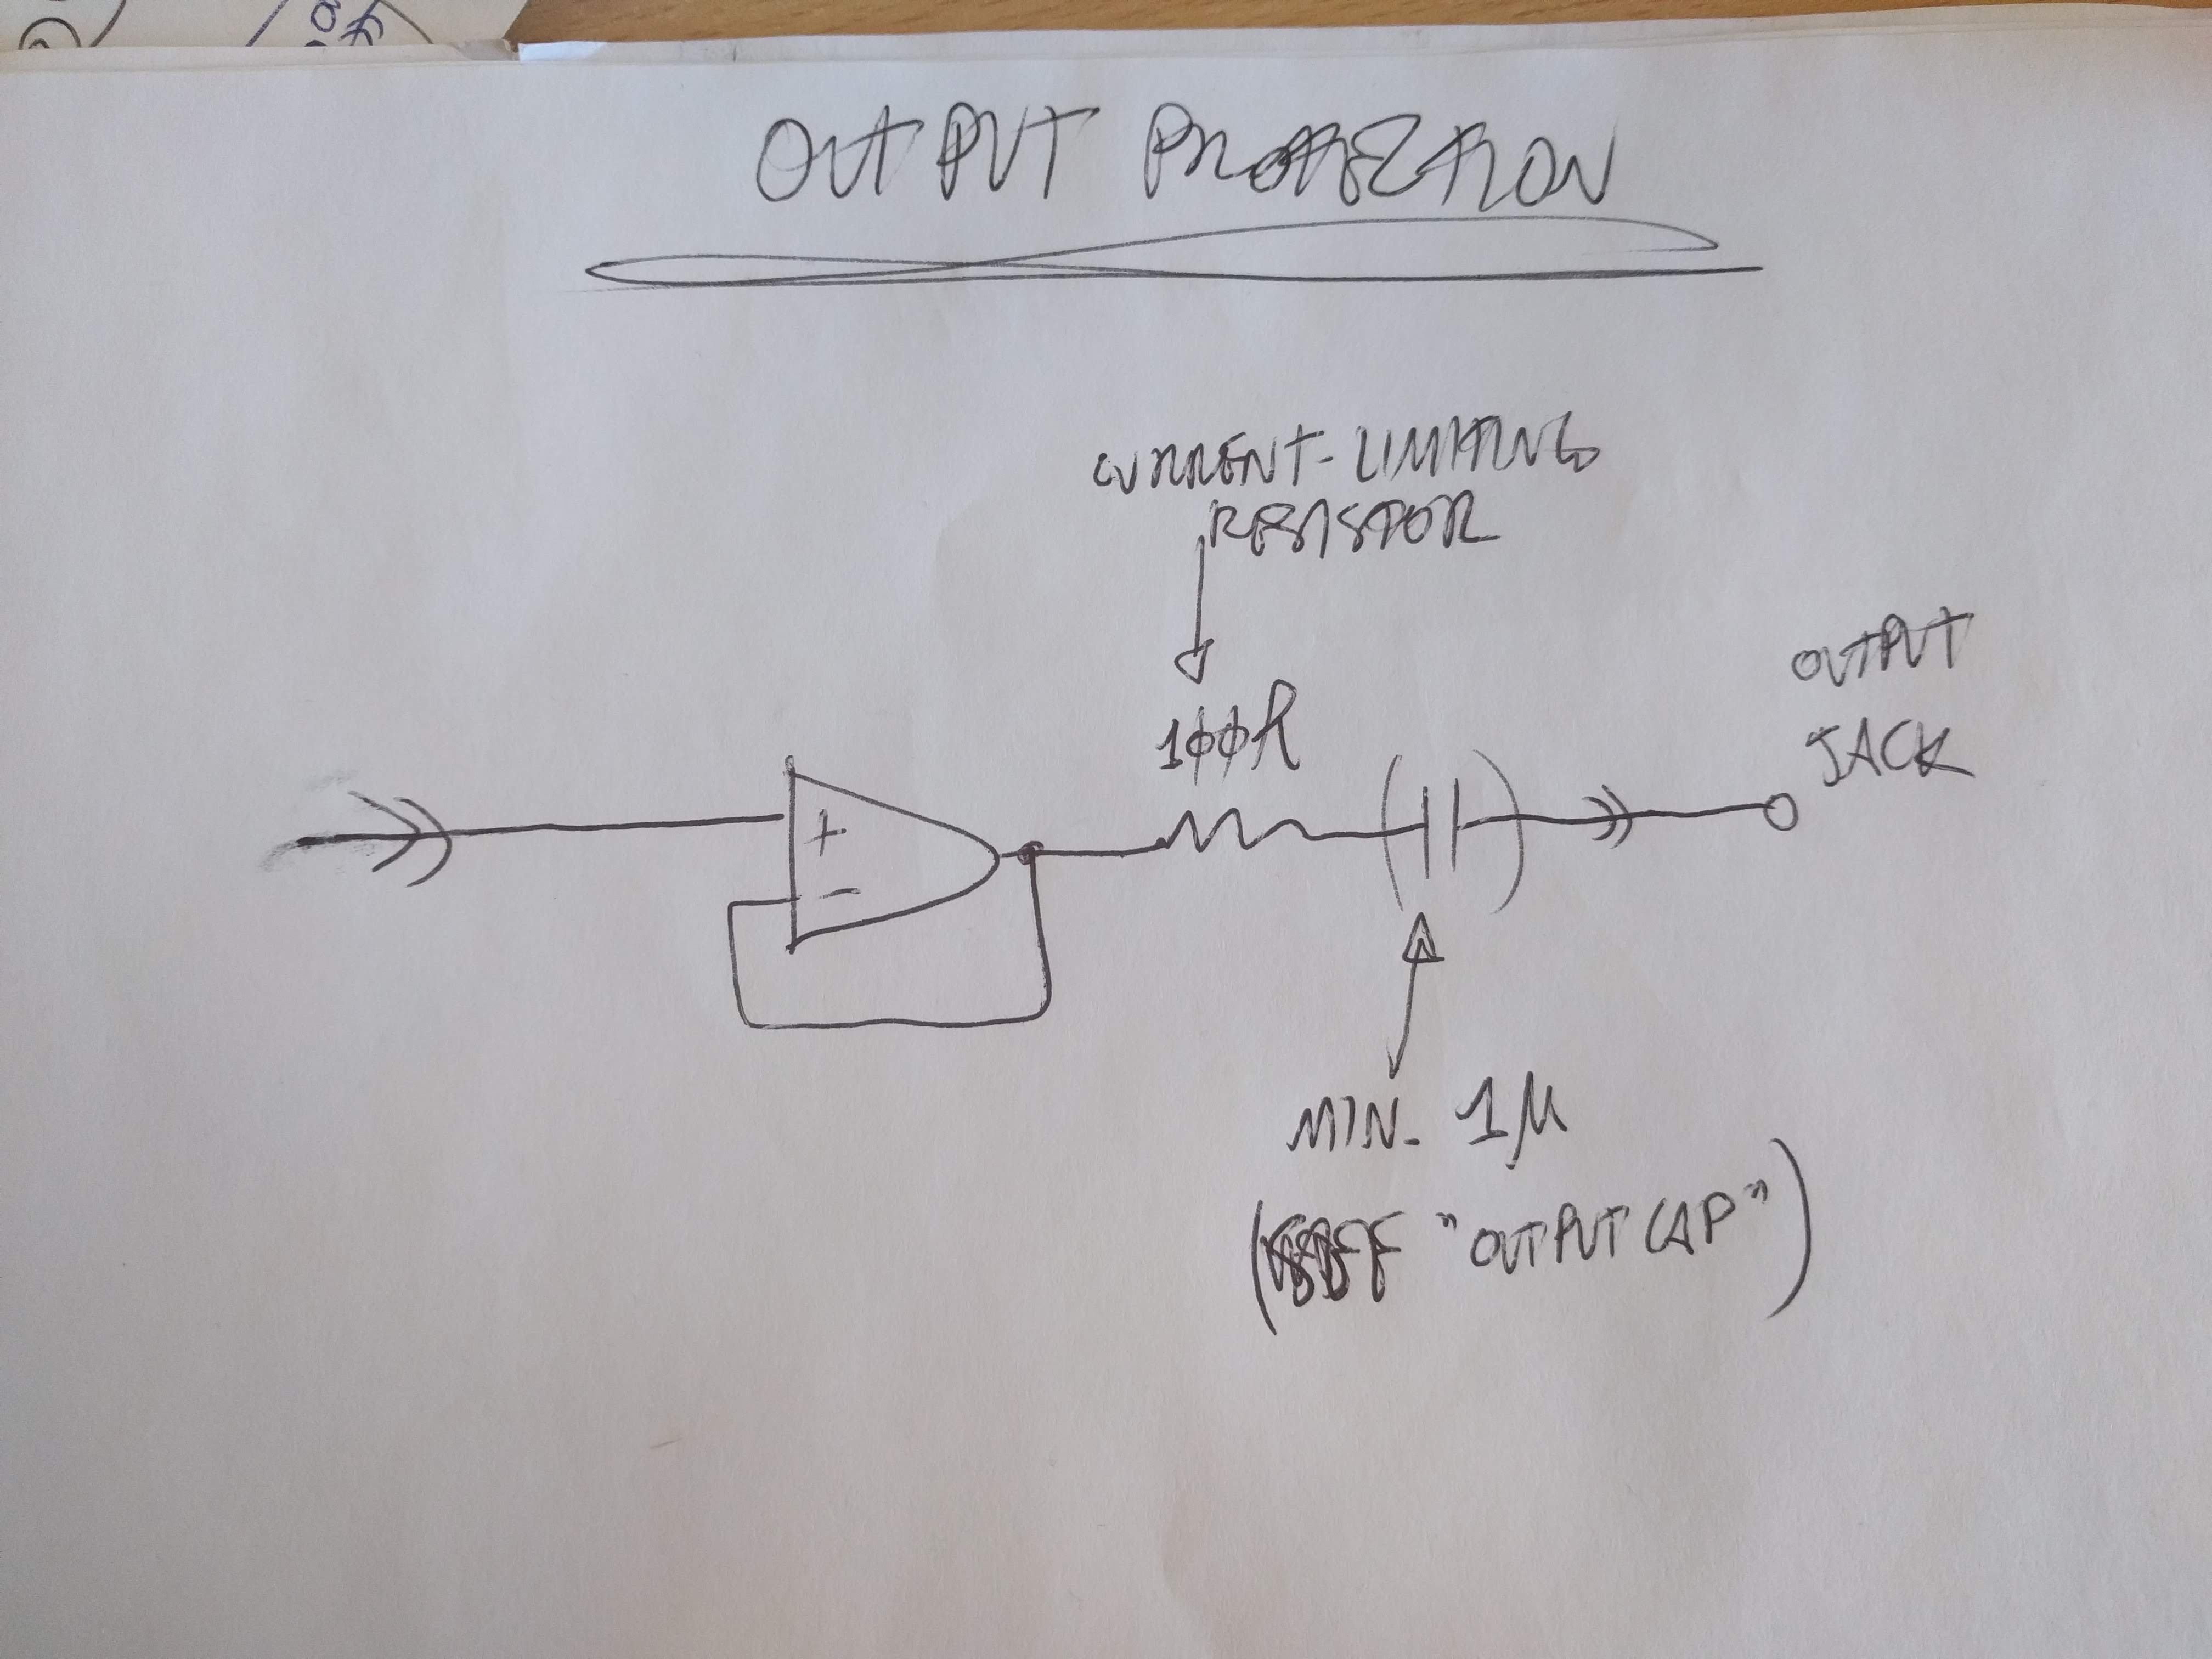 OUTPUT PROTECTION
CURRENT-LIMITING
RESISTOR
OUTPUT
JACK
100R
+
-
MIN. 1µ
(SEE "OUTPUT CAP")